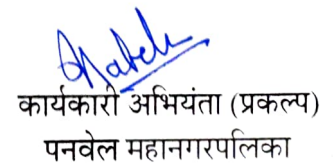 कार्यकारी अभियंता (प्रकल्प)
पनवेल महानगरपालिका